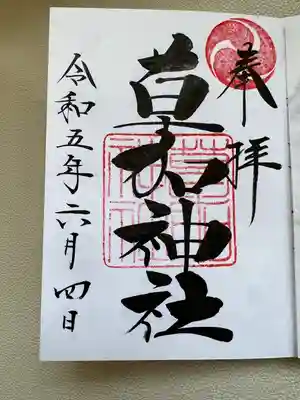 奉拝
草木神社
令和五年六月四日